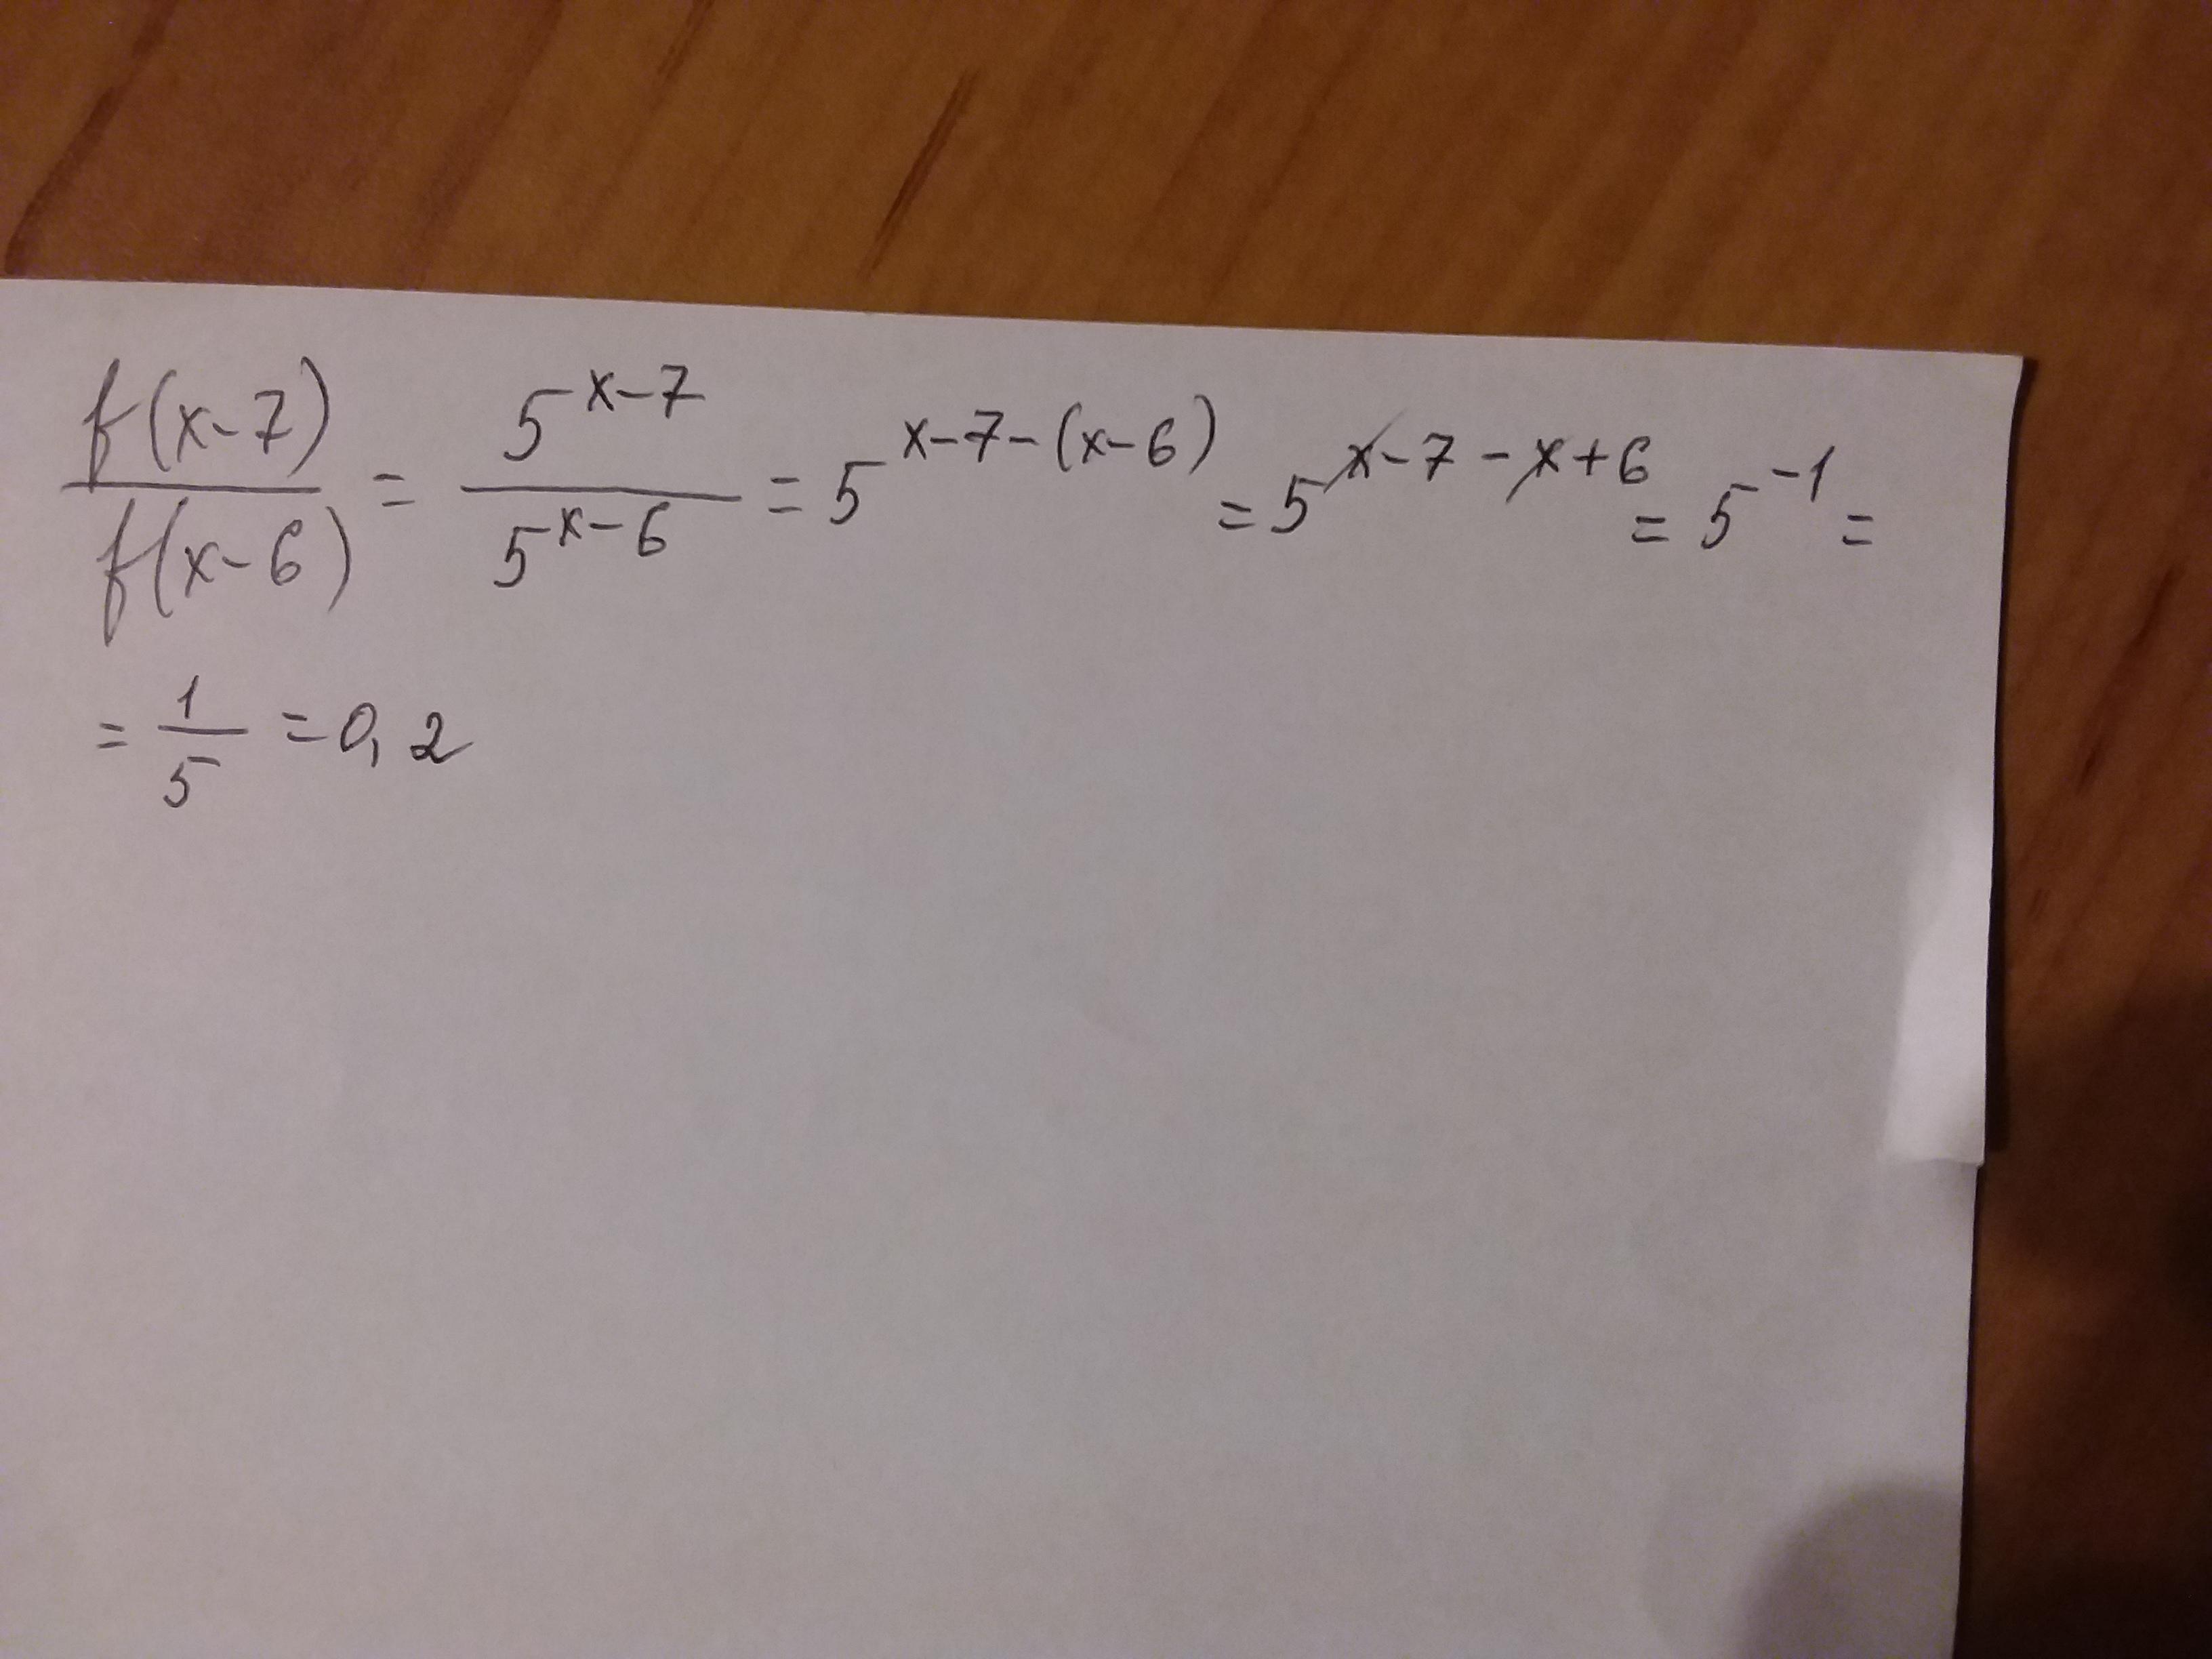 f(x-7)/f(x-6) = 5^(x-7)/5^(x-6) = 5^(x-7-(x-6)) = 5^(x-7-x+6) = 5^(-1) =
= 1/5 = 0,2